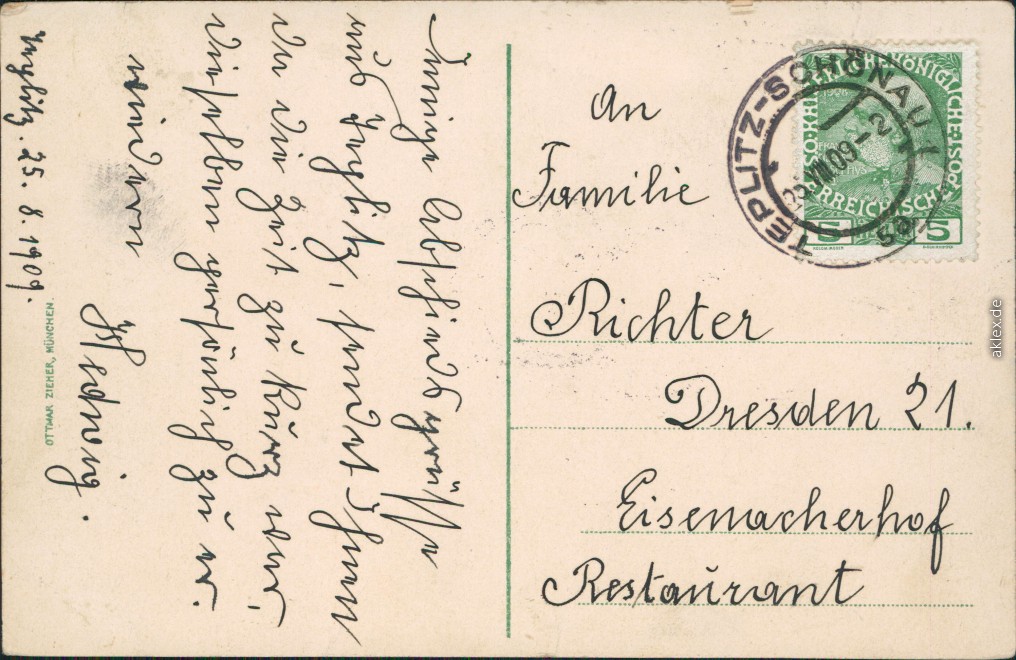 Innige Abschiedsgrüße
aus Teplitz, sendet Ihnen
da die Zeit zu kurz war,
dieselben persönlich zu er-
widern
Hedwig.
Teplitz. 25. 8. 1909.
OTTMAR ZIEHER, MÜNCHEN.
An
Familie
Richter
Dresden 21.
Eisenacherhof
Restaurant
TEPLITZ-SCHÖNAU 1
VIII 09-2
5a
KAISERLICHE KÖNIGLICHE POST
1908
ÖSTERREICHISCHE
5 5
aklex.de